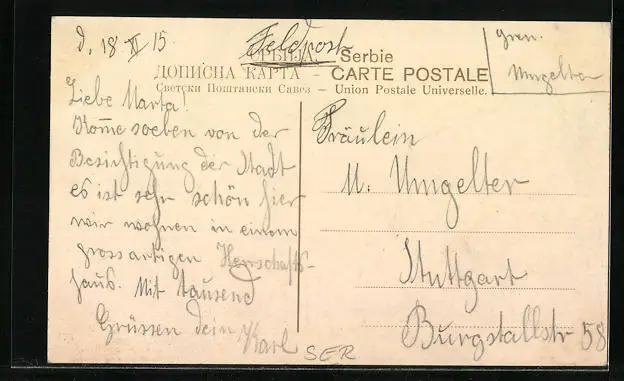 d. 18 XI 15.
Feldpost
Gren.
Umgelter
СРБИЈА. – Serbie
ДОПИСНА КАРТА – CARTE POSTALE
Светски Поштански Савез – Union Postale Universelle.
Liebe Marta!
Kom̄e soeben von der
Besichtigung der Stadt
es ist sehr schön hier
wir wohnen in einem
grossartigen Herrschafts-
haus. Mit tausend
Grüssen dein Karl
Fräulein
M. Umgelter
Stuttgart
Burgstallstr 58
SER